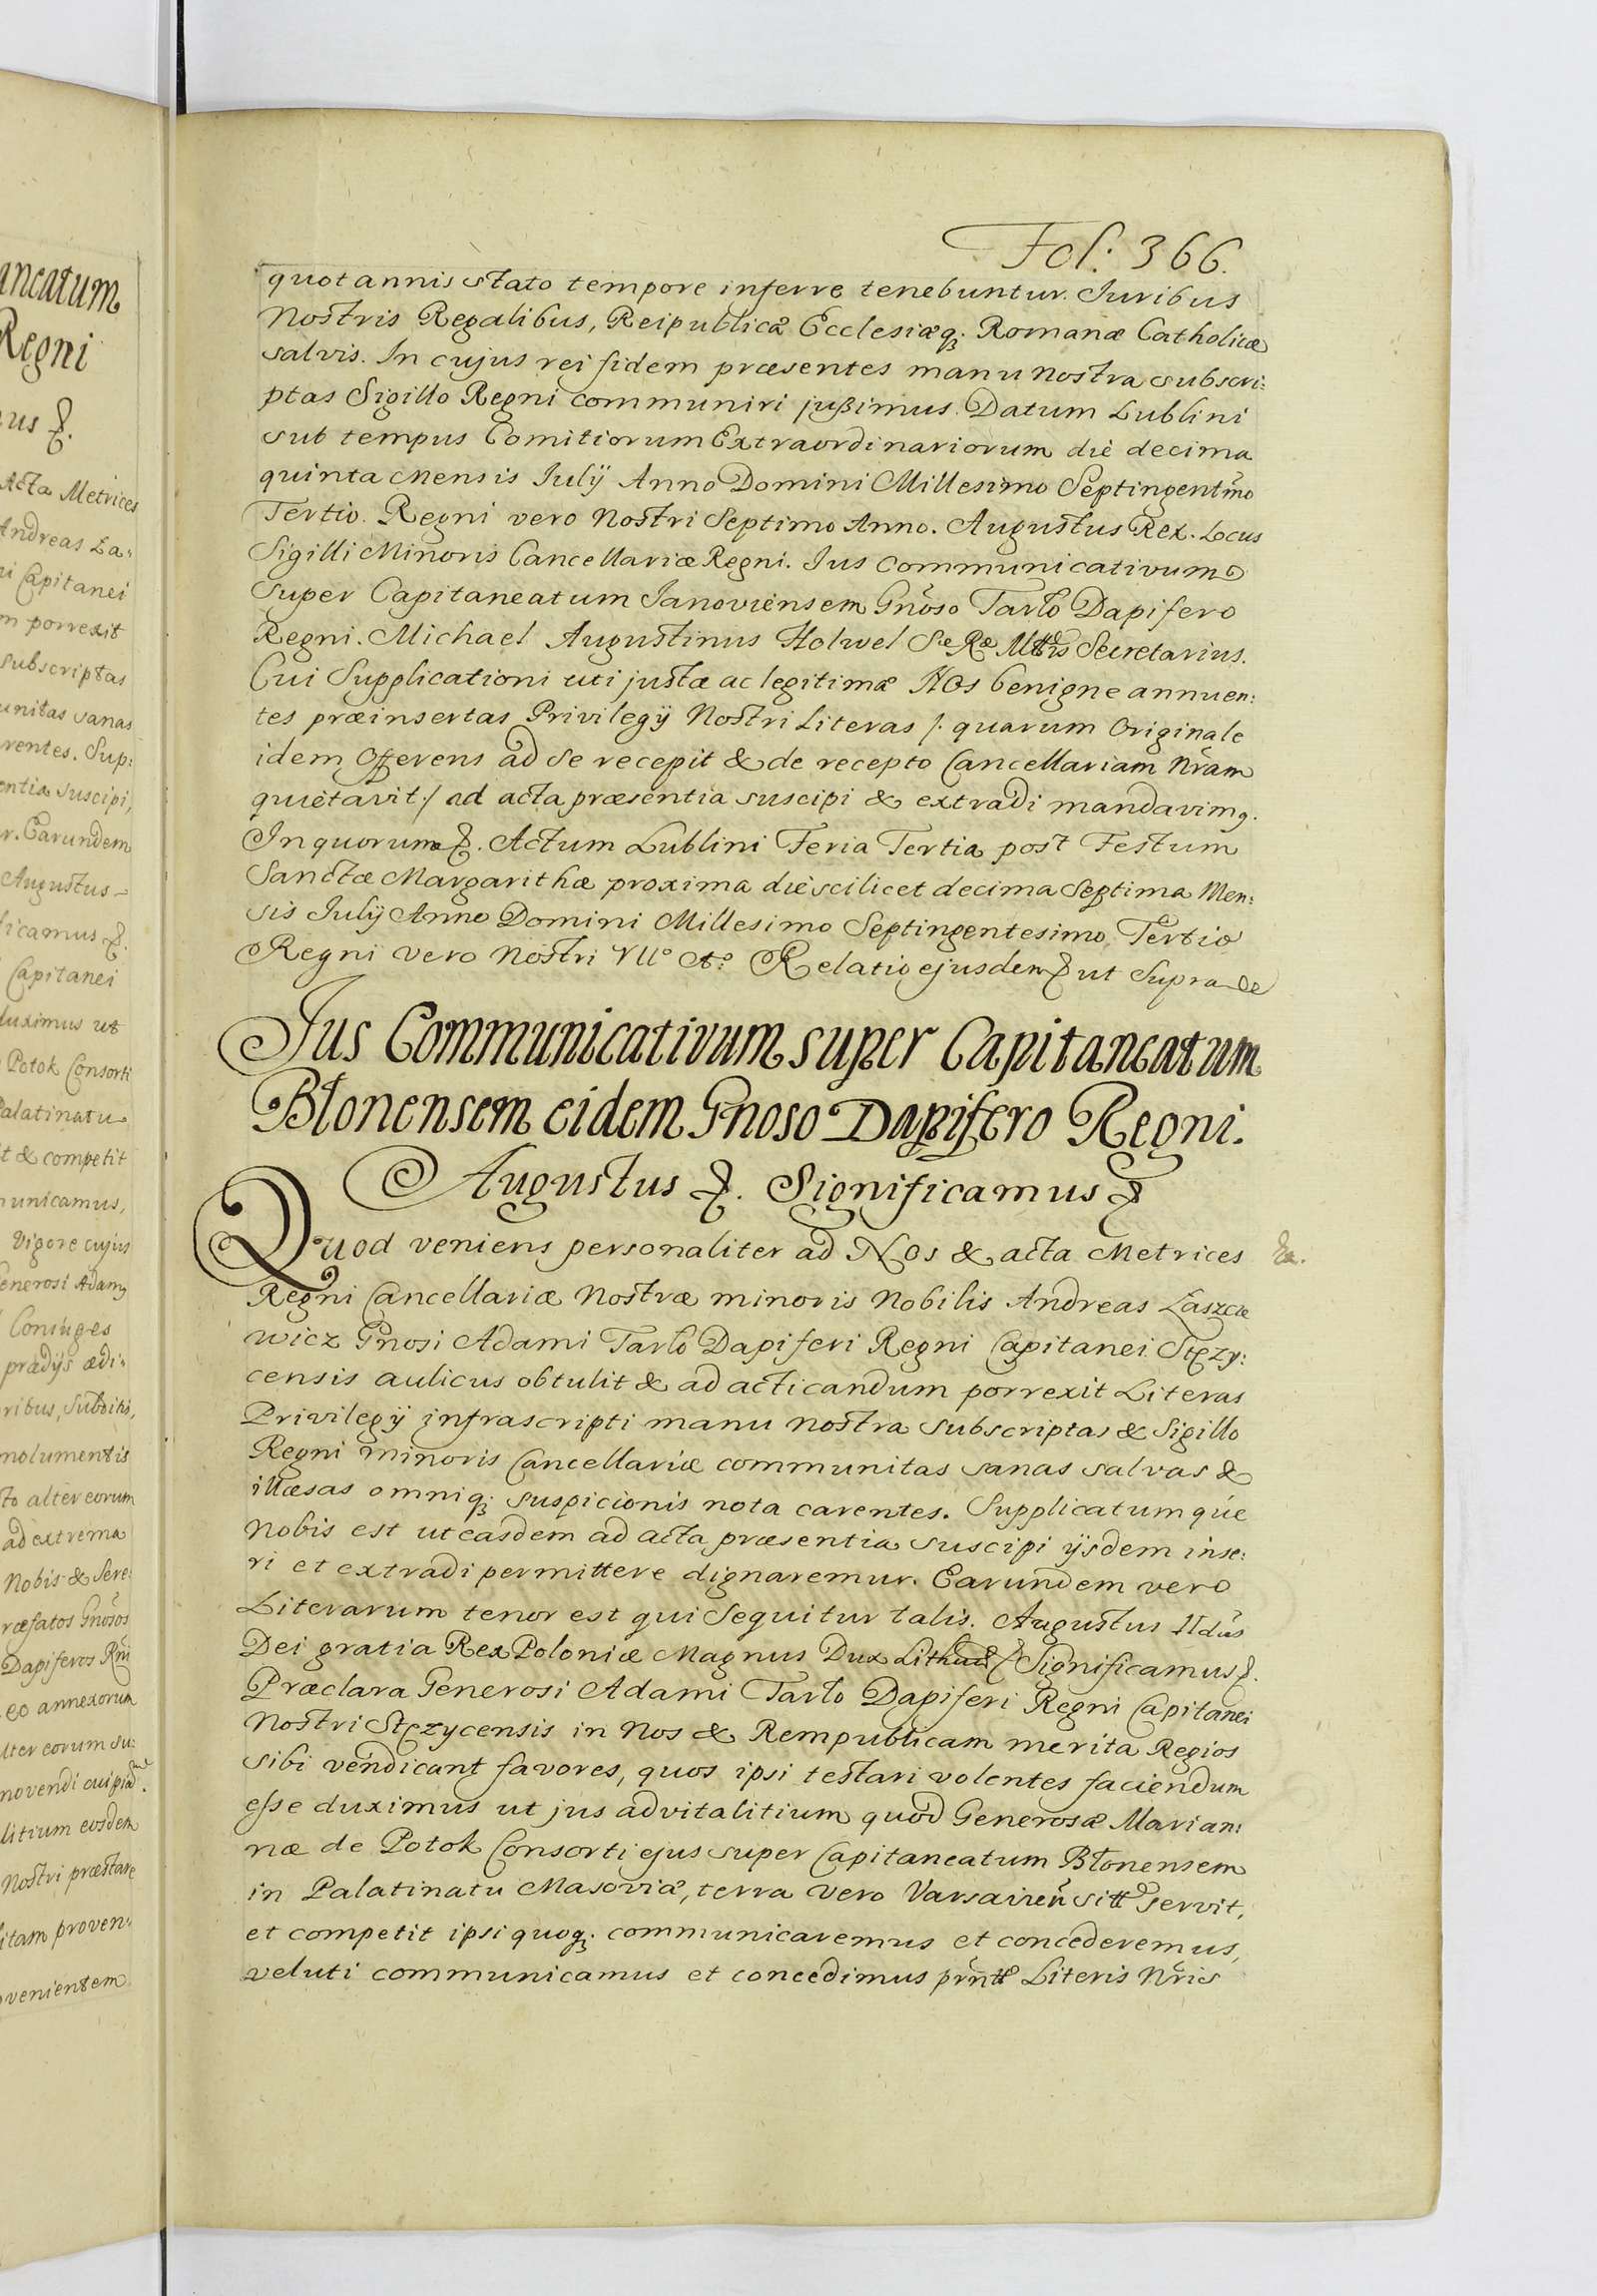 ancatum
Regni
us &.
Acta Metrices
Andreas La:
ni Capitanei
m porrexit
subscriptas
unitas sanas
rentes. Sup:
entia suscipi,
r. Earundem
Augustus
ficamus &.
Capitanei
duximus ut
Potok Consorti
Palatinatu
it & competit
municamus,
Vigore cujus
Generosi Adamg
Conjuges
prædijs ædi:
ribus, Subditis,
molumentis
to alter eorum
ad extrema
Nobis & Sere:
ræfatos Gnõsos
Dapiferos Rñi
eo annexorum
lter eorum su:
novendi cuipiam.
litium eosdem
Nostri præstare
itam proven:
venientem
Fol: 366.
quotannis stato tempore inferre tenebuntur. Iuribus
Nostris Regalibus, Reipublicæ Ecclesiæq; Romanæ Catholicæ
salvis. In cujus rei fidem præsentes manu nostra subscri:
ptas Sigillo Regni communiri jußimus. Datum Lublini
sub tempus Comitiorum Extraordinariorum die decima
quinta Mensis Iulij Anno Domini Millesimo Septingentmõ
Tertio. Regni vero Nostri Septimo Anno. Augustus Rex. Locus
Sigilli Minoris Cancellariæ Regni. Ius Communicativum
Super Capitaneatum Ianoviensem Gnõso Tarło Dapifero
Regni. Michael Augustinus Holwel Sæ Ræ Mttis Secretarius.
Cui Supplicationi uti justæ ac legitimæ Nos benigne annuen:
tes præinsertas Privilegij Nostri Literas /. quarum Originale
idem Offerens ad se recepit & de recepto Cancellariam Nrãm
quietavit ./ ad acta præsentia suscipi & extradi mandavimg.
In quorum &. Actum Lublini Feria Tertia post Festum
Sanctæ Margarithæ proxima die scilicet decima Septima Men:
sis Iulij Anno Domini Millesimo Septingentesimo Tertio
Regni vero Nostri VIIº Aº. Relatio ejusdem & ut Supra
Jus Communicativum super Capitaneatum
Błonensem eidem Gnoso Dapifero Regni.
Augustus &. Significamus &
Quod veniens personaliter ad Nos & acta Metrices
Regni Cancellariæ Nostræ minoris Nobilis Andreas Łaszcze
wicz Gnosi Adami Tarło Dapiferi Regni Capitanei Stęzy:
censis aulicus obtulit & ad acticandum porrexit Literas
Privilegij infrascripti manu nostra subscriptas & Sigillo
Regni minoris Cancellariæ communitas sanas salvas &
illæsas omniq; suspicionis nota carentes. Supplicatumque
Nobis est ut easdem ad acta præsentia suscipi ijsdem inse:
ri et extradi permittere dignaremur. Earundem vero
Literarum tenor est qui sequitur talis. Augustus IIdũs
Dei gratia Rex Poloniæ Magnus Dux Significamus &.
Præclara Generosi Adami Tarło Dapiferi Regni Capitanei
Nostri Stęzycensis in Nos & Rempublicam merita Regios
sibi vendicant favores, quos ipsi testari volentes faciendum
esse duximus ut jus advitalitium quod Generosæ Marian:
næ de Potok Consorti ejus super Capitaneatum Błonensem
in Palatinatu Masoviæ, terra vero servit,
et competit ipsi quoq; communicaremus et concederemus,
veluti communicamus et concedimus Literis Nrĩs